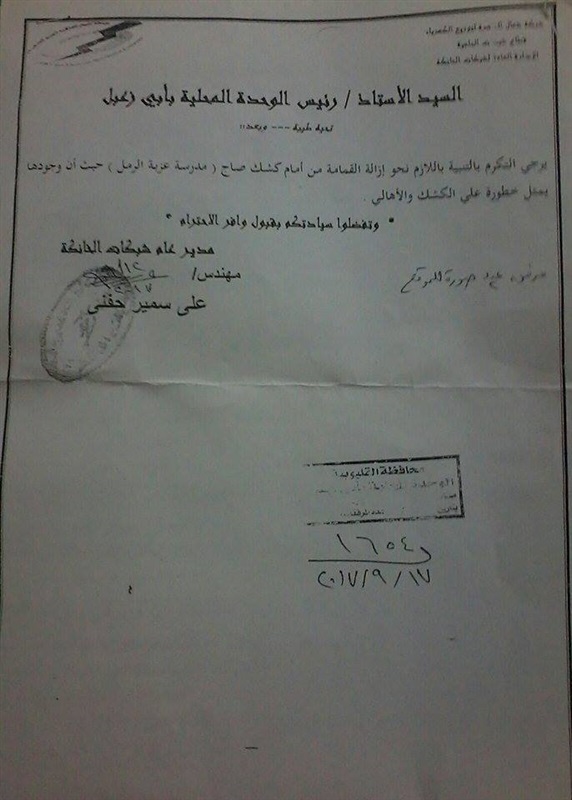 شركة شمال القاهرة لتوزيع الكهرباء
الإدارة العامة لشبكات الخانكة
السيد الأستاذ / رئيس الوحدة المحلية بأبي زعبل
تحية طيبة --- وبعد،،
يرجي التكرم بالتنبية باللازم نحو إزالة القمامة من أمام كشك صاج ( مدرسة عزبة الرمل ) حيث أن وجودها
يمثل خطورة علي الكشك والأهالي .
* وتفضلوا سيادتكم بقبول وافر الاحترام *
مدير عام شبكات الخانكة
مهندس/
على سمير حفنى
مرفق صورة للموقع
محافظة القليوبية
١٦٥٤
٢٠١٧/٩/١٧